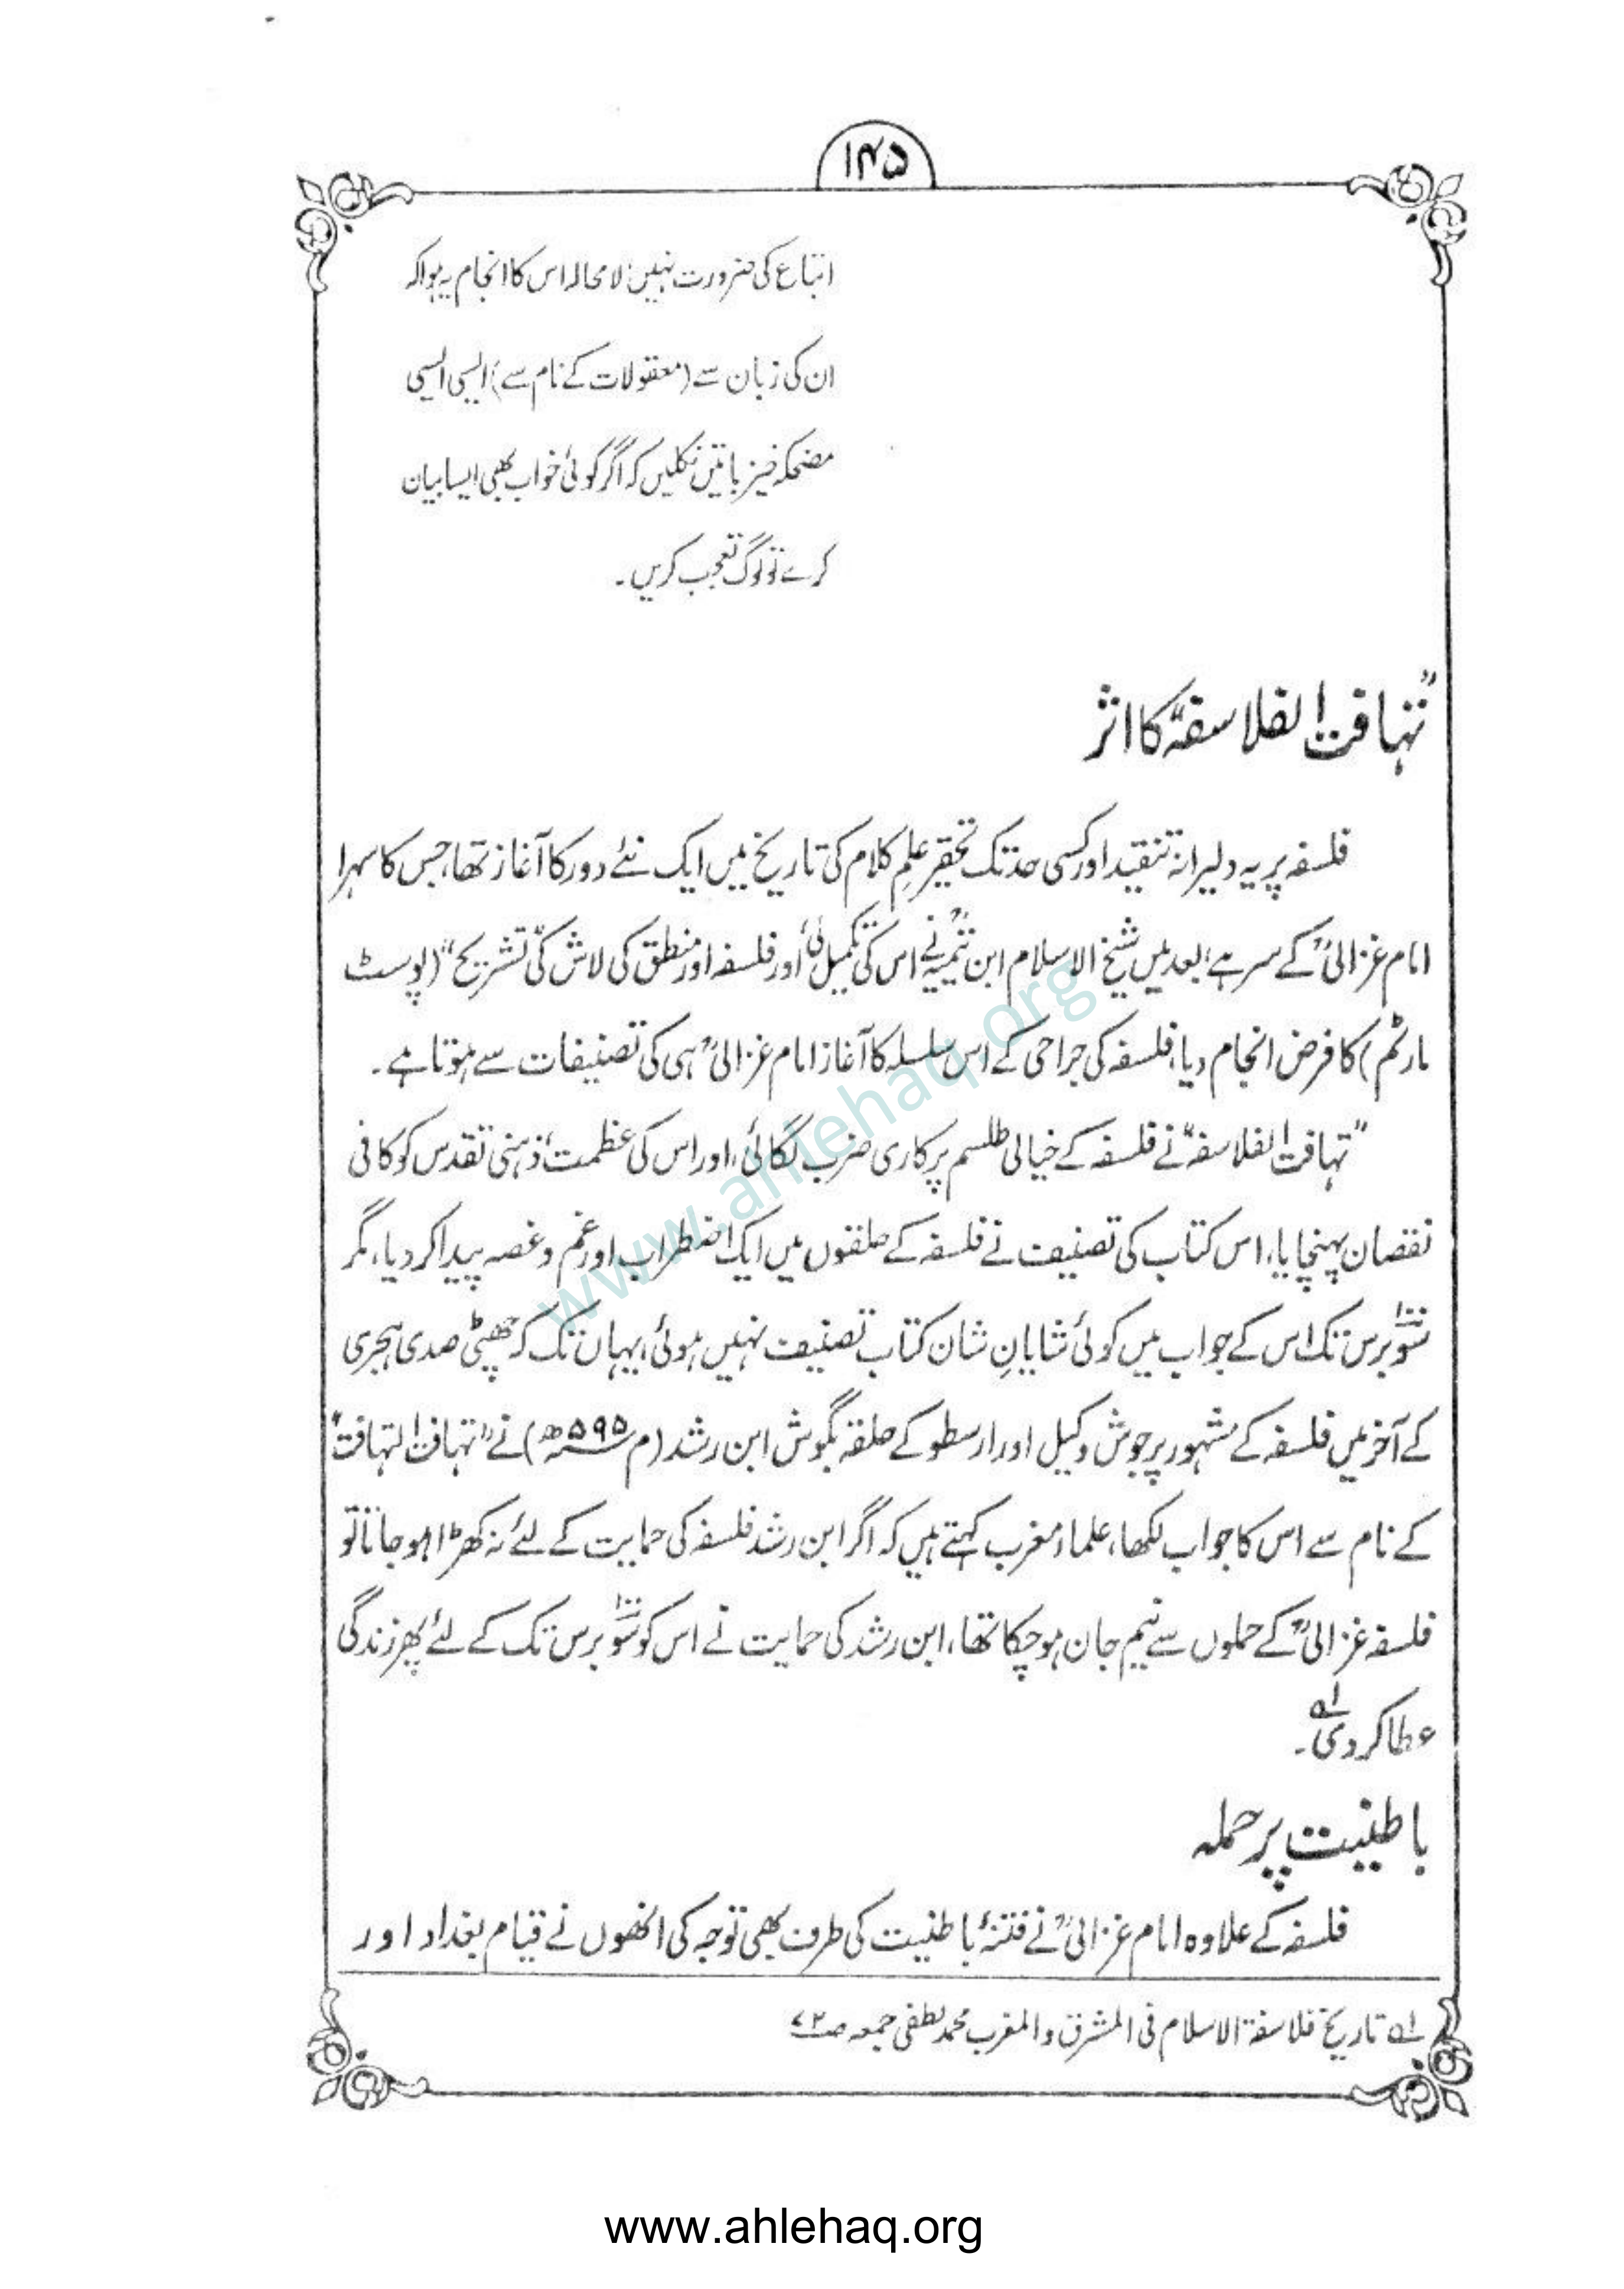 ۱۴۵
اتباع کی ضرورت نہیں؛ لامحالہ اس کا انجام یہ ہوا کہ
ان کی زبان سے (معقولات کے نام سے) ایسی ایسی
مضحکہ خیز باتیں نکلیں کہ اگر کوئی خواب بھی ایسا بیان
کرے تو لوگ تعجب کریں۔
"تہافت الفلاسفہ" کا اثر
فلسفہ پر یہ دلیرانہ تنقید اور کسی حد تک تحقیر علمِ کلام کی تاریخ میں ایک نئے دور کا آغاز تھا، جس کا سہرا
امام غزالیؒ کے سر ہے، بعد میں شیخ الاسلام ابن تیمیہؒ نے اس کی تکمیل کی، اور فلسفہ اور منطق کی لاش کی "تشریح" (پوسٹ
مارٹم) کا فرض انجام دیا، فلسفہ کی جراحی کے اس سلسلہ کا آغاز امام غزالیؒ ہی کی تصنیفات سے ہوتا ہے۔
"تہافت الفلاسفہ" نے فلسفہ کے خیالی طلسم پر کاری ضرب لگائی، اور اس کی عظمت، ذہنی تقدس کو کافی
نقصان پہنچایا، اس کتاب کی تصنیف نے فلسفہ کے حلقوں میں ایک اضطراب اور غم و غصہ پیدا کر دیا، مگر
سو۱۰۰ برس تک اس کے جواب میں کوئی شایانِ شان کتاب تصنیف نہیں ہوئی، یہاں تک کہ چھٹی صدی ہجری
کے آخر میں فلسفہ کے مشہور پرجوش وکیل اور ارسطو کے حلقہ بگوش ابن رشد (م ۵۹۵ھ) نے "تہافت التہافت"
کے نام سے اس کا جواب لکھا، علماء مغرب کہتے ہیں کہ اگر ابن رشد فلسفہ کی حمایت کے لئے نہ کھڑا ہو جاتا تو
فلسفہ غزالیؒ کے حملوں سے نیم جان ہو چکا تھا، ابن رشد کی حمایت نے اس کو سو۱۰۰ برس تک کے لئے پھر زندگی
عطا کر دی۔ ۱ھ
باطنیت پر حملہ
فلسفہ کے علاوہ امام غزالیؒ نے فتنۂ باطنیت کی طرف بھی توجہ کی انھوں نے قیام بغداد اور
۱ھ تاریخ فلاسفۃ الاسلام فی المشرق والمغرب محمد لطفی جمعہ ص۷۲
www.ahlehaq.org
www.ahlehaq.org